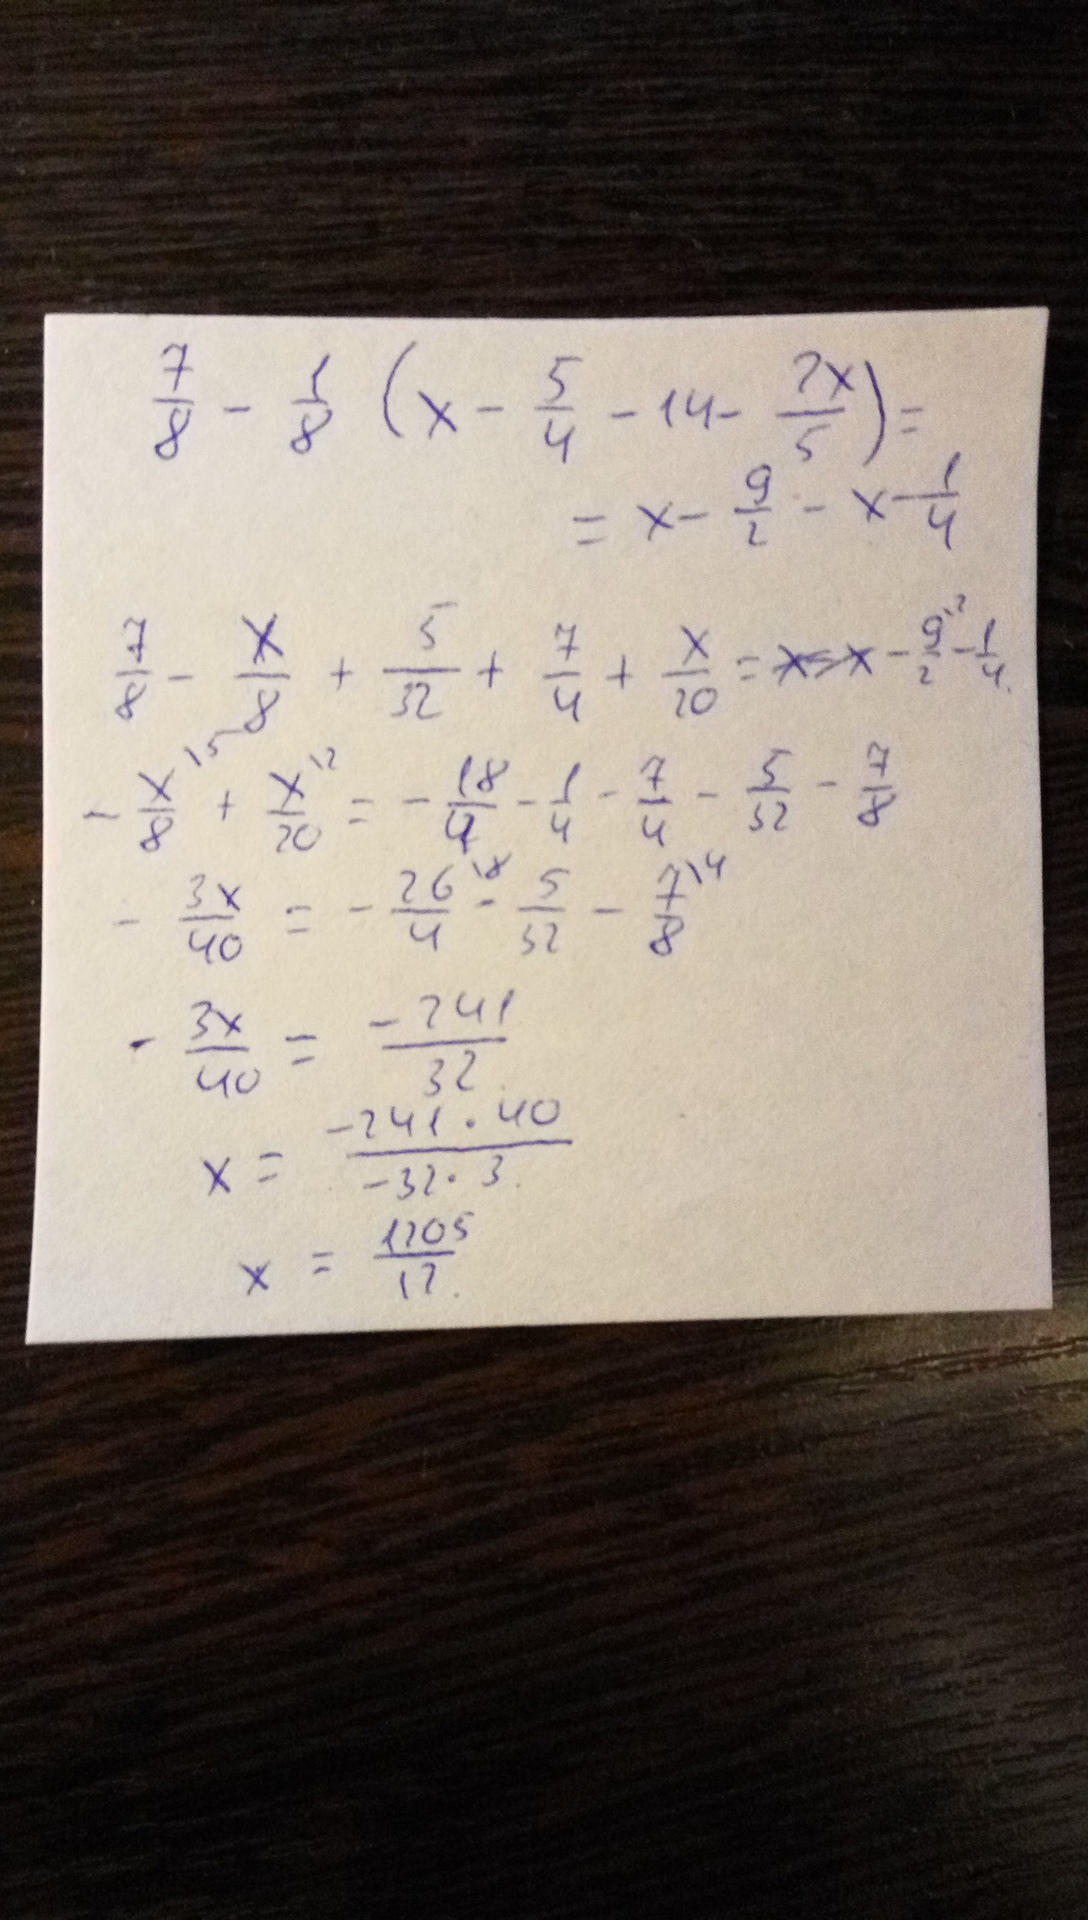 7/8 - 1/8 (x - 5/4 - 14 - 2x/5) =
= x - 9/2 - x - 1/4
7/8 - x/8 + 5/32 + 7/4 + x/20 = x - x - 9/2 \2 - 1/4.
- x/8 \5 + x/20 \2 = - 18/4 - 1/4 - 7/4 - 5/32 - 7/8
- 3x/40 = - 26/4 \8 - 5/32 - 7/8 \4
- 3x/40 = -241/32.
x = -241·40/-32·3.
x = 1205/12.